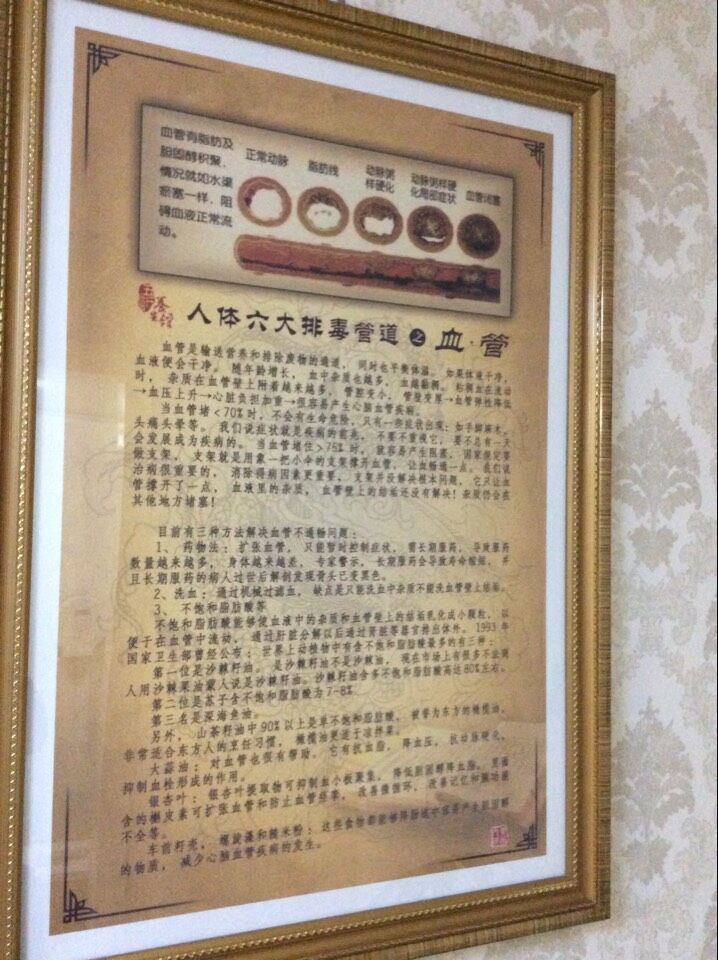 血管有脂肪及
胆固醇积聚，
情况就如水渠
淤塞一样，阻
碍血液正常流
动。
正常动脉
脂肪线
动脉粥
样硬化
动脉粥样硬
化局部症状
血管
养生馆
人体六大排毒管道之血·管
血管是输送营养和排除废物的通道，同时也平衡体温。如果体液干净，
血液便会干净。随年龄增长，血中杂质也越多，血越黏稠。粘稠血在流动
时，杂质在血管壁上附着越来越多，管腔变小，管壁变厚→血管弹性降低
→血压上升→心脏负担加重→很容易产生心脑血管疾病。
当血管堵<70%时，不会有生命危险，只有一些症状出现：如手脚麻木。
头痛头晕等。我们说症状就是疾病的前兆，不要不重视它，要不总有一天
会发展成为疾病的。当血管堵住>75%时，就容易产生阻塞，国家规定要
做支架，支架就是用象一把小伞的支架撑开血管，让血畅通一点。我们说
治病很重要的，消除得病因素更重要，支架并没解决根本问题，它只让血
管撑开了一点，血液里的杂质，血管壁上的垢还没有解决！杂质仍会在
其他地方堵塞！
目前有三种方法解决血管不通畅问题：
1、药物法：扩张血管，只能暂时控制症状，需长期服药，导致服药
数量越来越多，身体越来越差，专家警示，长期服药会导致寿命缩短，并
且长期服药的病人过世后解剖发现骨头已变黑色。
2、洗血：通过机械过滤血，缺点是只能洗血中杂质不能洗血管壁上垢。
3、不饱和脂肪酸等
不饱和脂肪酸能够使血液中的杂质和血管壁上的垢乳化成小颗粒，以
便于在血管中流动，通过肝脏分解以后通过肾脏等器官排出体外。1993年
国家卫生部曾经公布：世界上动植物中有含不饱和脂肪酸最多的有三种：
第一位是沙棘籽油。是沙棘籽油不是沙棘油，现在市场上有很多不法商
人用沙棘果油蒙人说是沙棘籽油。沙棘籽油含多不饱和脂肪酸高达80%左右。
第二位是苏子含不饱和脂肪酸为7-8%.
第三名是深海鱼油。
另外，山茶籽油中90%以上是单不饱和脂肪酸，被誉为东方的橄榄油。
非常适合东方人的烹饪习惯，橄榄油更适于凉拌菜。
大蒜油：对血管也很有帮助。它有抗血脂，降血压，抗动脉硬化，
抑制血栓形成的作用。
银杏叶：银杏叶提取物可抑制血小板聚集，降低胆固醇降血脂。里面
含的槲皮素可扩张血管和防止血管痉挛，改善微循环，改善记忆和脑功能
不全等。
车前籽壳，螺旋藻和糙米粉：这些食物都能够降肠道中容易产生胆固醇
的物质，减少心脑血管疾病的发生。